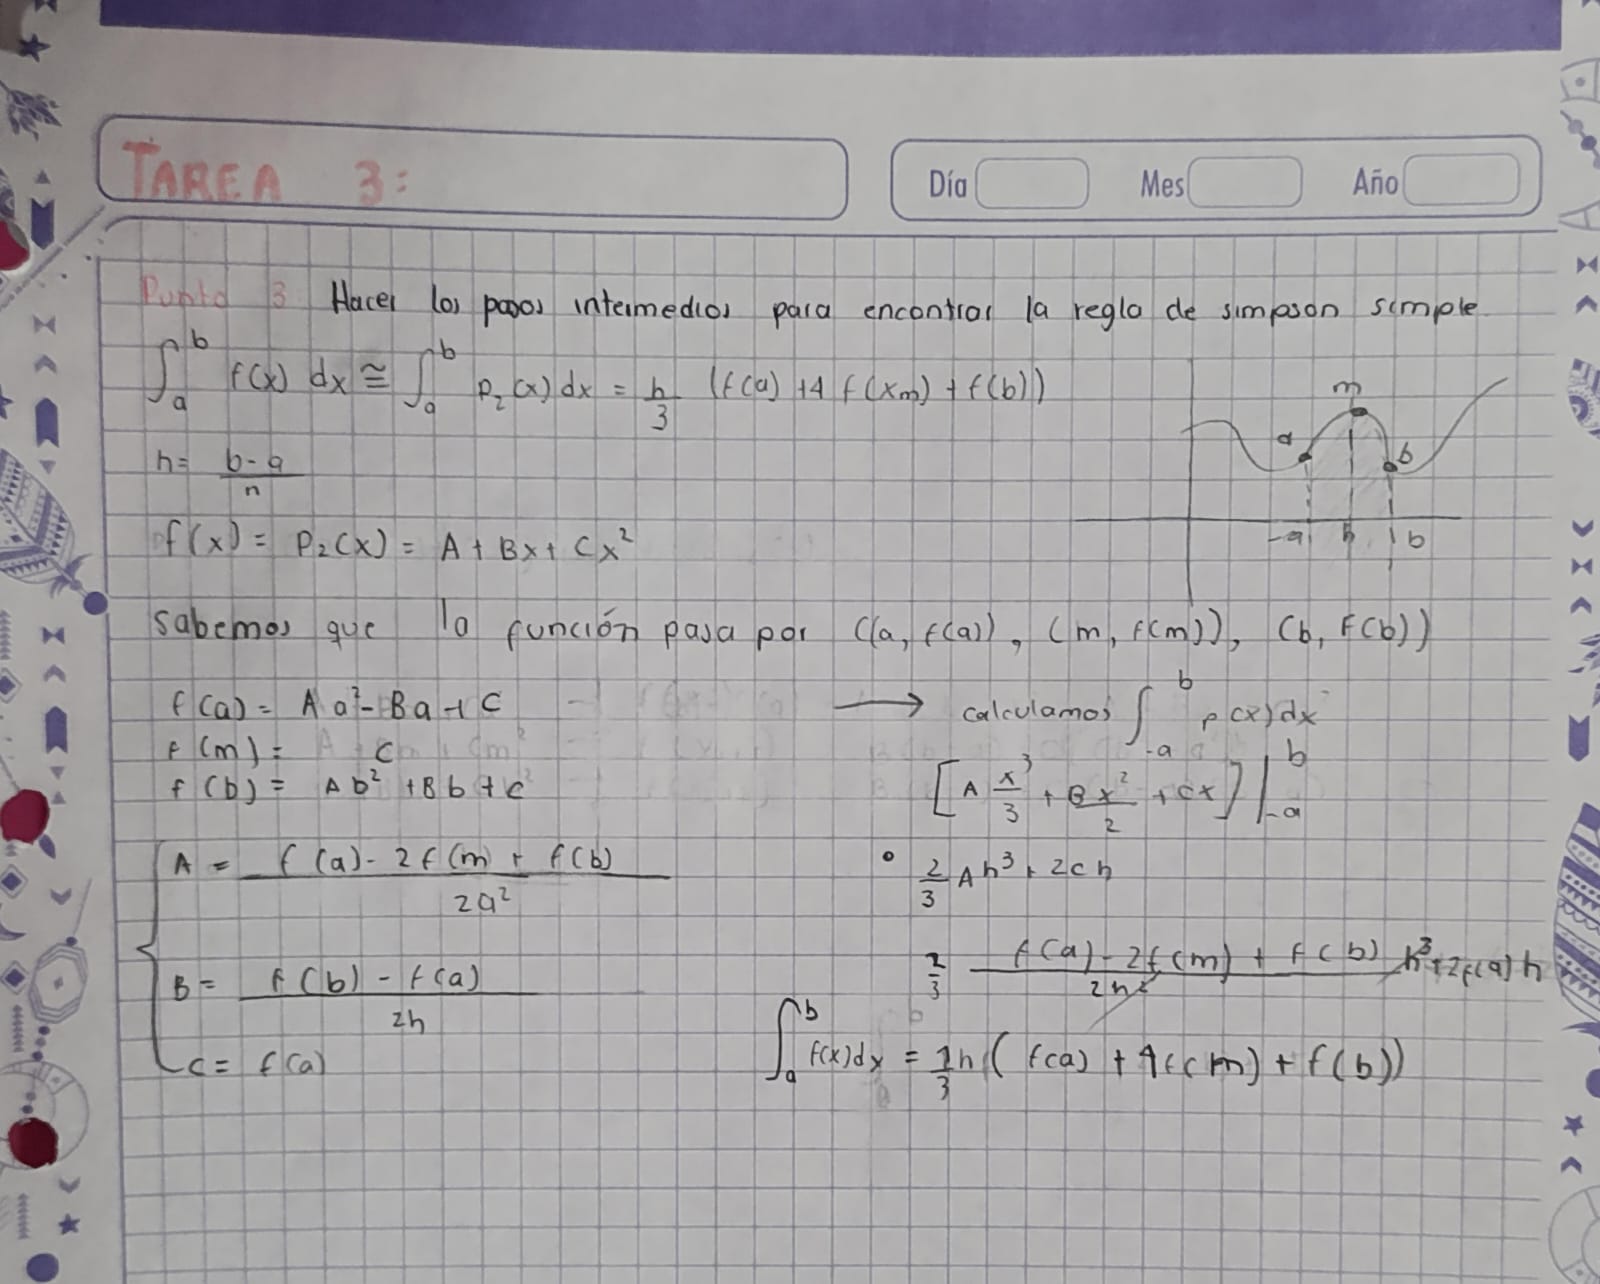 TAREA 3:
Día Mes Año
Punto 3 Hacer los pasos intermedios para encontrar la regla de simpson simple
∫_a^b f(x) dx ≅ ∫_a^b P₂(x) dx = h/3 (f(a) + 4 f(xm) + f(b))
m
a
b
-a h b
h = (b-a)/n
f(x) = P₂(x) = A + Bx + Cx²
Sabemos que la función pasa por ((a, f(a)), (m, f(m)), (b, f(b))
f(a) = A a² - Ba + C
f(m) = C
f(b) = Ab² + Bb + C
A = (f(a) - 2f(m) + f(b)) / 2a²
B = (f(b) - f(a)) / 2h
C = f(a)
→ calculamos ∫_-a^b p(x) dx
[A x³/3 + B x²/2 + Cx] |_-a^b
° 2/3 Ah³ + 2Ch
2/3 (f(a) - 2f(m) + f(b)) / 2h² h³ + 2f(a) h
∫_a^b f(x) dx = 1/3 h ( f(a) + 4f(m) + f(b))